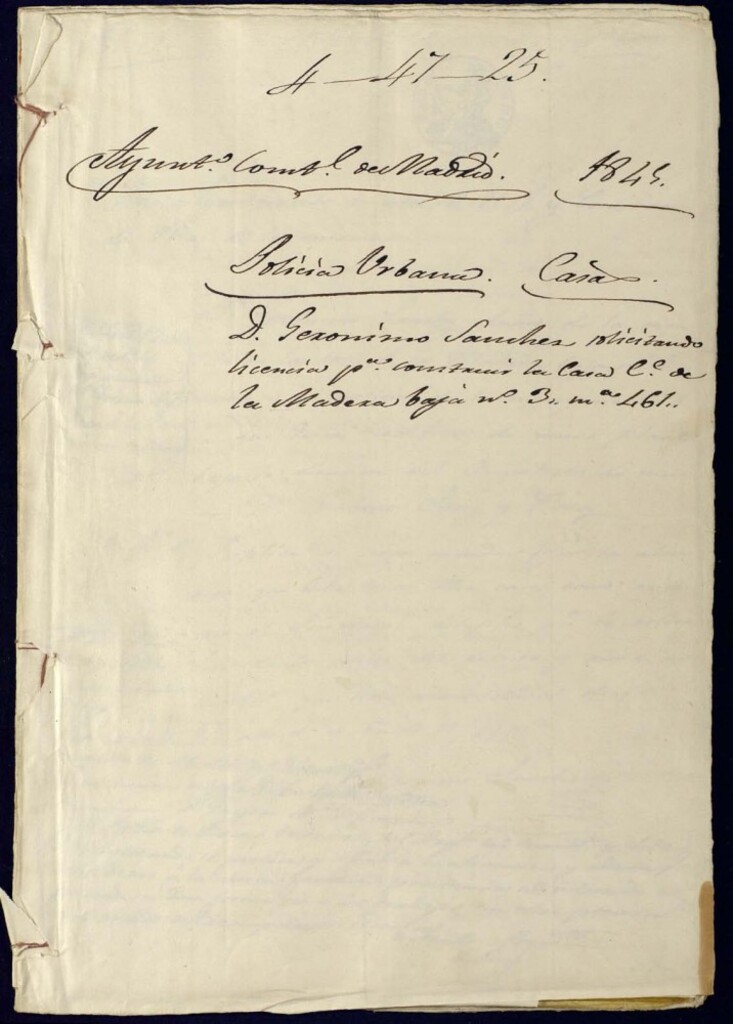 4-47-25.
Ayunt.º Const.l de Madrid. 184
Policia Urbana. Casas.
D. Geronimo Sanchez solicitando
licencia p.ª construir la Casa C.e de
la Madera baja n.º 3. m.ª 461.